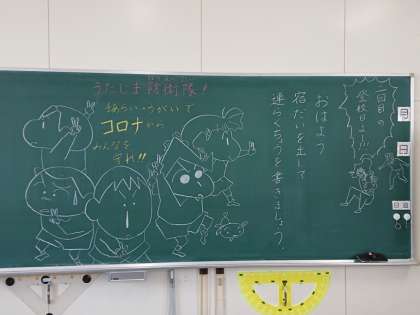 うたじま防衛隊！
手あらい・うがいで
コロナから
みんなを
守れ!!
おはよう
宿だいを出して
連らくちょうを書きましょう。
二回目の
登校日よ!!
月
日
日直